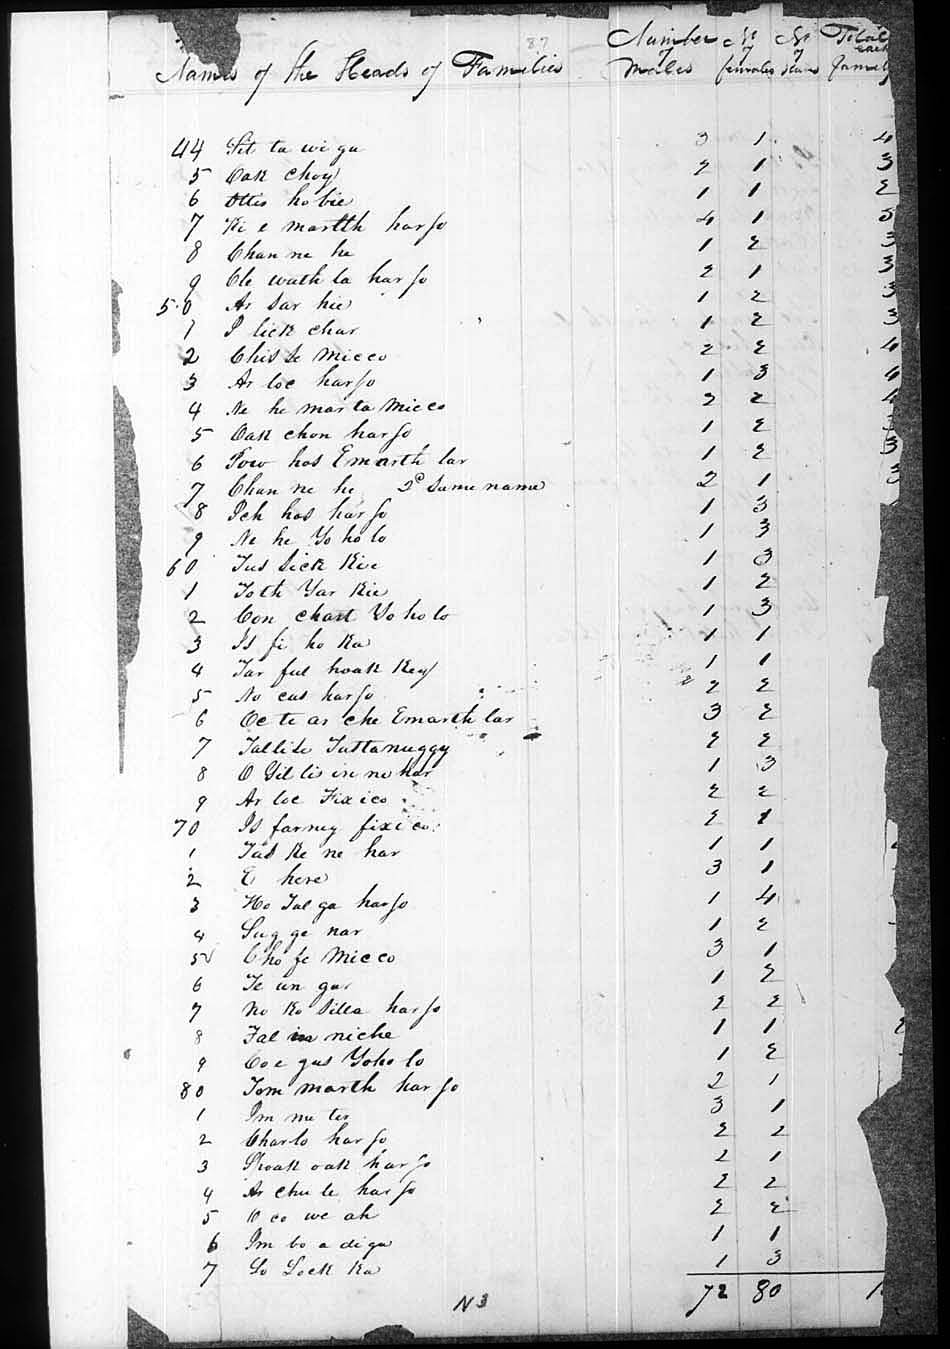 87
Names of the Heads of Families Number of Males No of females No of slaves Total each family
44 Sit ta wi ga 3 1 4
5 Oak choy 2 1 3
6 Ottis hobie 1 1 2
7 Ki e martth harjo 4 1
8 Chan ne he 1 2 3
9 Cle wath la harjo 2 1 3
50 Ar sar hie 1 2 3
1 I lick char 1 2 3
2 Chis se Micco 2 2 4
3 Ar loc harjo 1 3 4
4 Ne he mar ta Micco 2 2 4
5 Oak chon harjo 1 2 3
6 Pow hos Emarth lar 1 2 3
7 Chan ne he 2d same name 2 1 3
8 Ich has harjo 1 3
9 Ne he Yo ho lo 1 3
60 Tus sick Kie 1 3
1 Toth Yar Kie 1 2
2 Con chart Yo ho lo 1 3
3 Is fi ho Ka 1 1
4 Tar ful hoak Key 1 1
5 No cus harjo 2 2
6 Oc te ar che Emarth lar 3 2
7 Tallise Tuttanuggy 2 2
8 O Yil lis in ne har 1 3
9 Ar loc Fixico 2 2
70 Is farney fixico 2 1
1 Tus Ke ne har 1 1
2 E here 3 1
3 Ho Tal ga harjo 1 4
4 Sug ge nar 1 2
5 Cho fe Micco 3 1
6 Te un gar 1 2
7 No Ko silla harjo 2 2
8 Fal niche 1 1
9 Coe gus Yoho lo 1 2
80 Tom marth harjo 2 1
1 Im me ter 3 1
2 Charlo harjo 2 2
3 Thoak oak harjo 2 1
4 Ar chu le harjo 2 2
5 O co we ah 2 2
6 Im bo a diga 1 1
7 So Lock Ka 1 3
72 80
N3